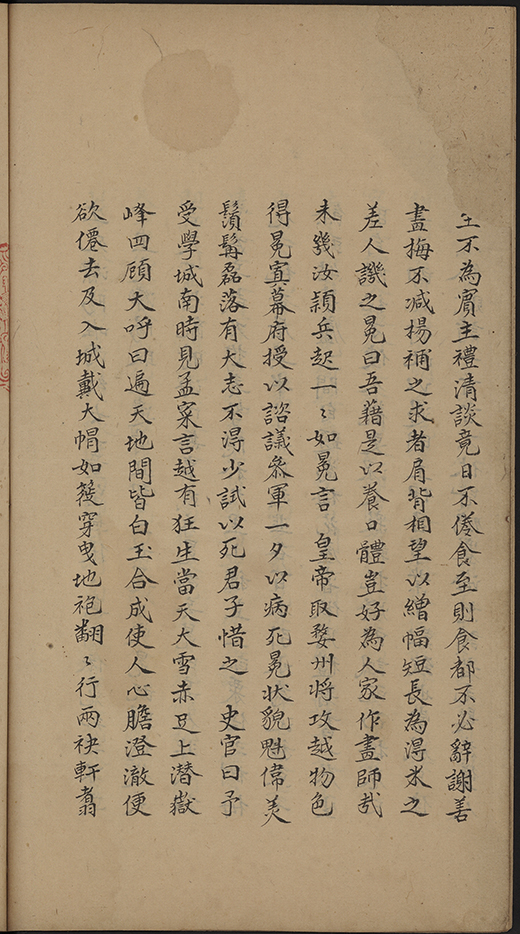 至不為賔主禮清談竟日不倦食至則食都不必辭謝善
畫梅不减揚補之求者肩背相望以繒幅短長為淂米之
差人譏之冕曰吾藉是以養口體豈好為人家作畫師㢤
未幾汝頴兵起一〻如冕言　皇帝取婺州将攻越物色
得冕寘幕府授以諮議叅軍一夕以病死冕状貌魁偉美
鬚髯磊落有大志不得少試以死君子惜之　史官曰予
受學城南時見孟寀言越有狂生當天大雪赤足上潜嶽
峰四顧大呼曰遍天地間皆白玉合成使人心膽澄澈便
欲僊去及入城戴大帽如簁穿曳地袍翩〻行兩袂軒翥